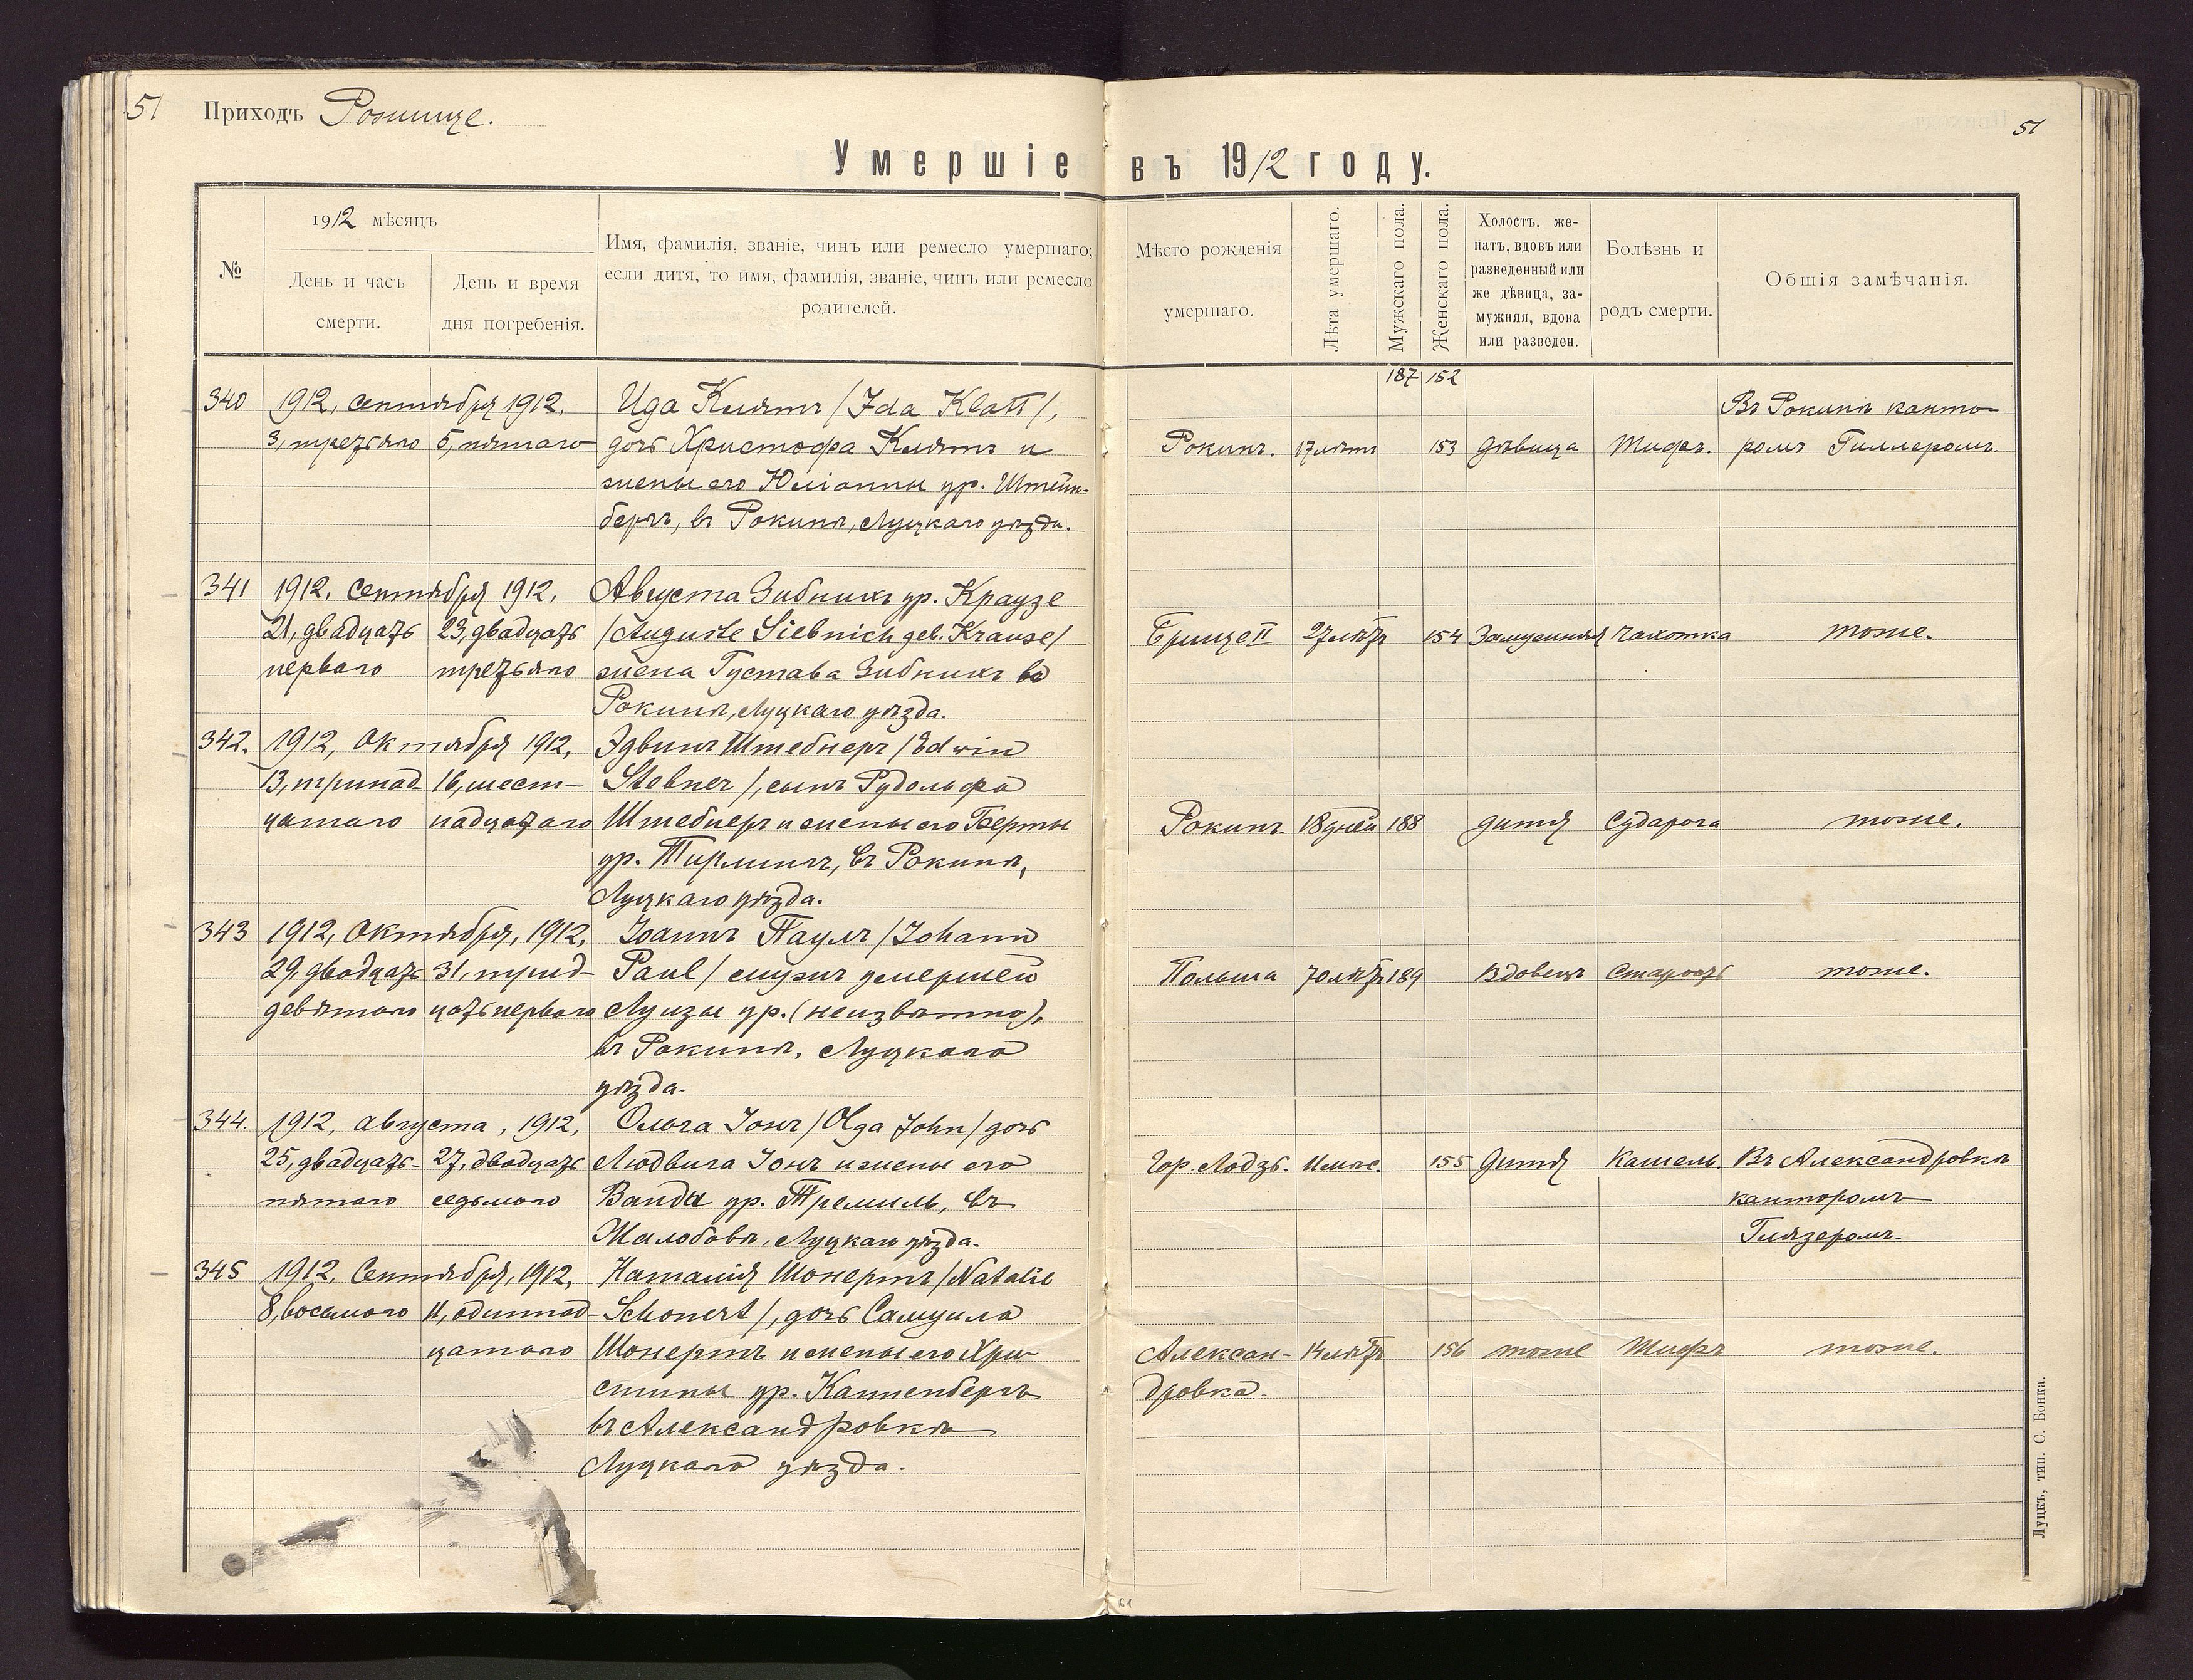 51 Приходъ Рожище.
51
Умершіе въ 1912 году.
№
1912 мѣсяцъ
День и часъ
смерти.
День и время
дня погребенія.
Имя, фамилія, званіе, чинъ или ремесло умершаго;
если дитя, то имя, фамилія, званіе, чинъ или ремесло
родителей.
Мѣсто рожденія
умершаго.
Лѣта умершаго.
Мужскаго пола.
Женскаго пола.
Холостъ, же-
натъ, вдовъ или
разведенный или
же дѣвица, за-
мужняя, вдова
или разведен.
Болѣзнь и
родъ смерти.
Общія замѣчанія.
187 152
340 1912, сентября 1912, Ида Клятъ /Ida Klatt/, Въ Рокинѣ канто-
3, третьяго 5, пятаго дочь Христофа Клятъ и Рокинъ. 17 лѣтъ 153 дѣвица Тифъ. ромъ Гиллеромъ.
жены его Юліанны ур. Штейн-
бергъ, въ Рокинѣ, Луцкаго уѣзда.
341 1912, Сентября 1912, Августа Зибнихъ ур. Краузе
21, двадцать 23, двадцать /Auguste Siebnich geb. Krause/ Брище II 27 лѣтъ 154 Замужняя Чахотка тоже.
перваго третьяго жена Густава Зибнихъ въ
Рокинѣ, Луцкаго уѣзда.
342. 1912, Октября 1912, Эдвинъ Штебнеръ /Edwin
13, тринад- 16, шест- Stebner/, сынъ Рудольфа
цатаго надцатаго Штебнеръ и жены его Берты Рокинъ. 18 дней 188 дитя Судорога тоже.
ур. Тирлингъ, въ Рокинѣ,
Луцкаго уѣзда.
343 1912, Октября, 1912, Іоаннъ Пауль /Johann
29, двадцать 31, трид- Paul/ мужъ умершей Польша 70 лѣтъ 189 Вдовецъ Старость тоже.
девятаго цать перваго Луизы ур. (неизвѣстно),
въ Рокинѣ, Луцкаго
уѣзда.
344. 1912, августа, 1912, Ольга Іонъ /Olga John/ дочь
25, двадцать- 27, двадцать Людвига Іонъ и жены его Гор. Лодзь. 11 мѣс. 155 дитя Кашель. Въ Александровкѣ
пятаго седьмого Ванды ур. Тремиль, въ канторомъ
Жалобовѣ, Луцкаго уѣзда. Глязеромъ.
345 1912, Сентября, 1912, Наталія Шонертъ /Natalie
8, восьмого 11, одиннад- Schonert/, дочь Самуила
цатаго Шонертъ и жены его Хри- Алексан- 14 лѣтъ 156 тоже Тифъ тоже.
стины ур. Канненбергъ дровка.
въ Александровкѣ
Луцкаго уѣзда.
Луцкъ, тип. С. Бонка.
61